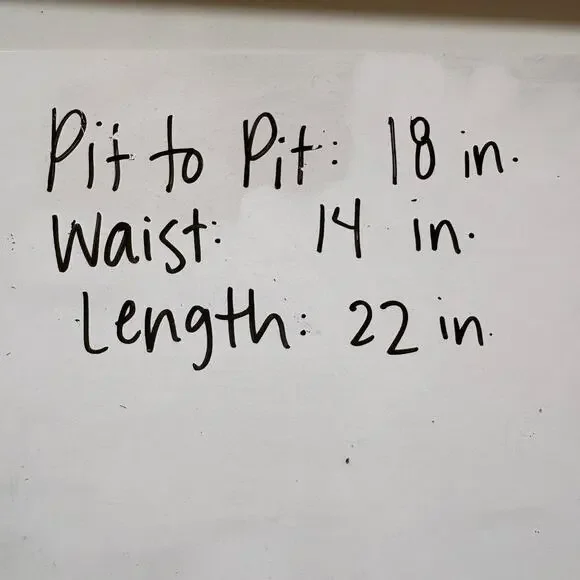 Pit to Pit: 18 in.
Waist: 14 in.
Length: 22 in.